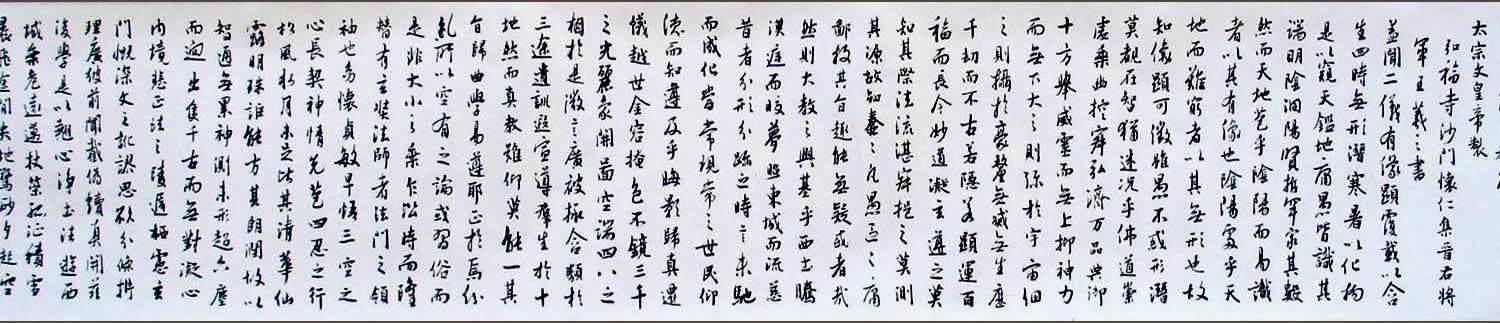 太宗文皇帝製
弘福寺沙門懷仁集晉右將
軍王羲之書
蓋聞二儀有像顯覆載以含
生四時無形潛寒暑以化物
是以窺天鑑地庸愚皆識其
端明陰洞陽賢哲罕窮其數
然而天地苞乎陰陽而易識
者以其有像也陰陽處乎天
地而難窮者以其無形也故
知像顯可徵雖愚不惑形潛
莫覩在智猶迷況乎佛道崇
虛乘幽控寂弘濟萬品典御
十方舉威靈而無上抑神力
而無下大之則彌於宇宙細
之則攝於豪釐無滅無生歷
千劫而不古若隱若顯運百
福而長今妙道凝玄遵之莫
知其際法流湛寂挹之莫測
其源故知蠢々凡愚區々庸
鄙投其旨趣能無疑或者哉
然則大教之興基乎西土騰
漢庭而皎夢照東域而流慈
昔者分形分跡之時言未馳
而成化當常現常之世民仰
德而知遵及乎晦影歸真遷
儀越世金容掩色不鏡三千
之光麗象開圖空端四八之
相於是微言廣被拯含類於
三途遺訓遐宣導群生於十
地然而真教難仰莫能一其
旨歸曲學易遵耶正於焉紛
糺所以空有之論或習俗而
是非大小之乘乍沿時而隆
替有玄奘法師者法門之領
袖也幼懷貞敏早悟三空之
心長契神情先苞四忍之行
松風水月未足比其清華仙
露明珠詎能方其朗潤故以
智通無累神測未形超六塵
而迥出隻千古而無對凝心
內境悲正法之陵遲栖慮玄
門慨深文之訛謬思欲分條析
理廣彼前聞截偽續真開茲
後學是以翹心淨土法遊西
域乘危遠邁杖策孤征積雪
晨飛途間失地驚砂夕起空